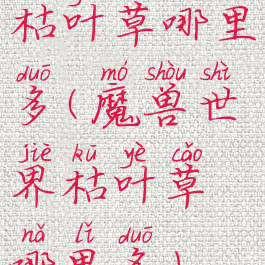 枯叶草哪里
duō mó shòu shì
多(魔兽世
jiè kū yè cǎo
界枯叶草
nǎ lǐ duō
哪里多)